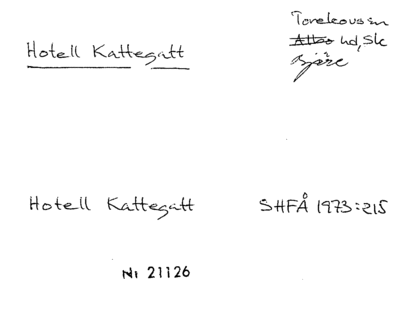 Hotell Kattegatt
Torekovs sn
Allbo hd, Sk
Bjäre
Hotell Kattegatt
SHFÅ 1973:215
Nr 21126